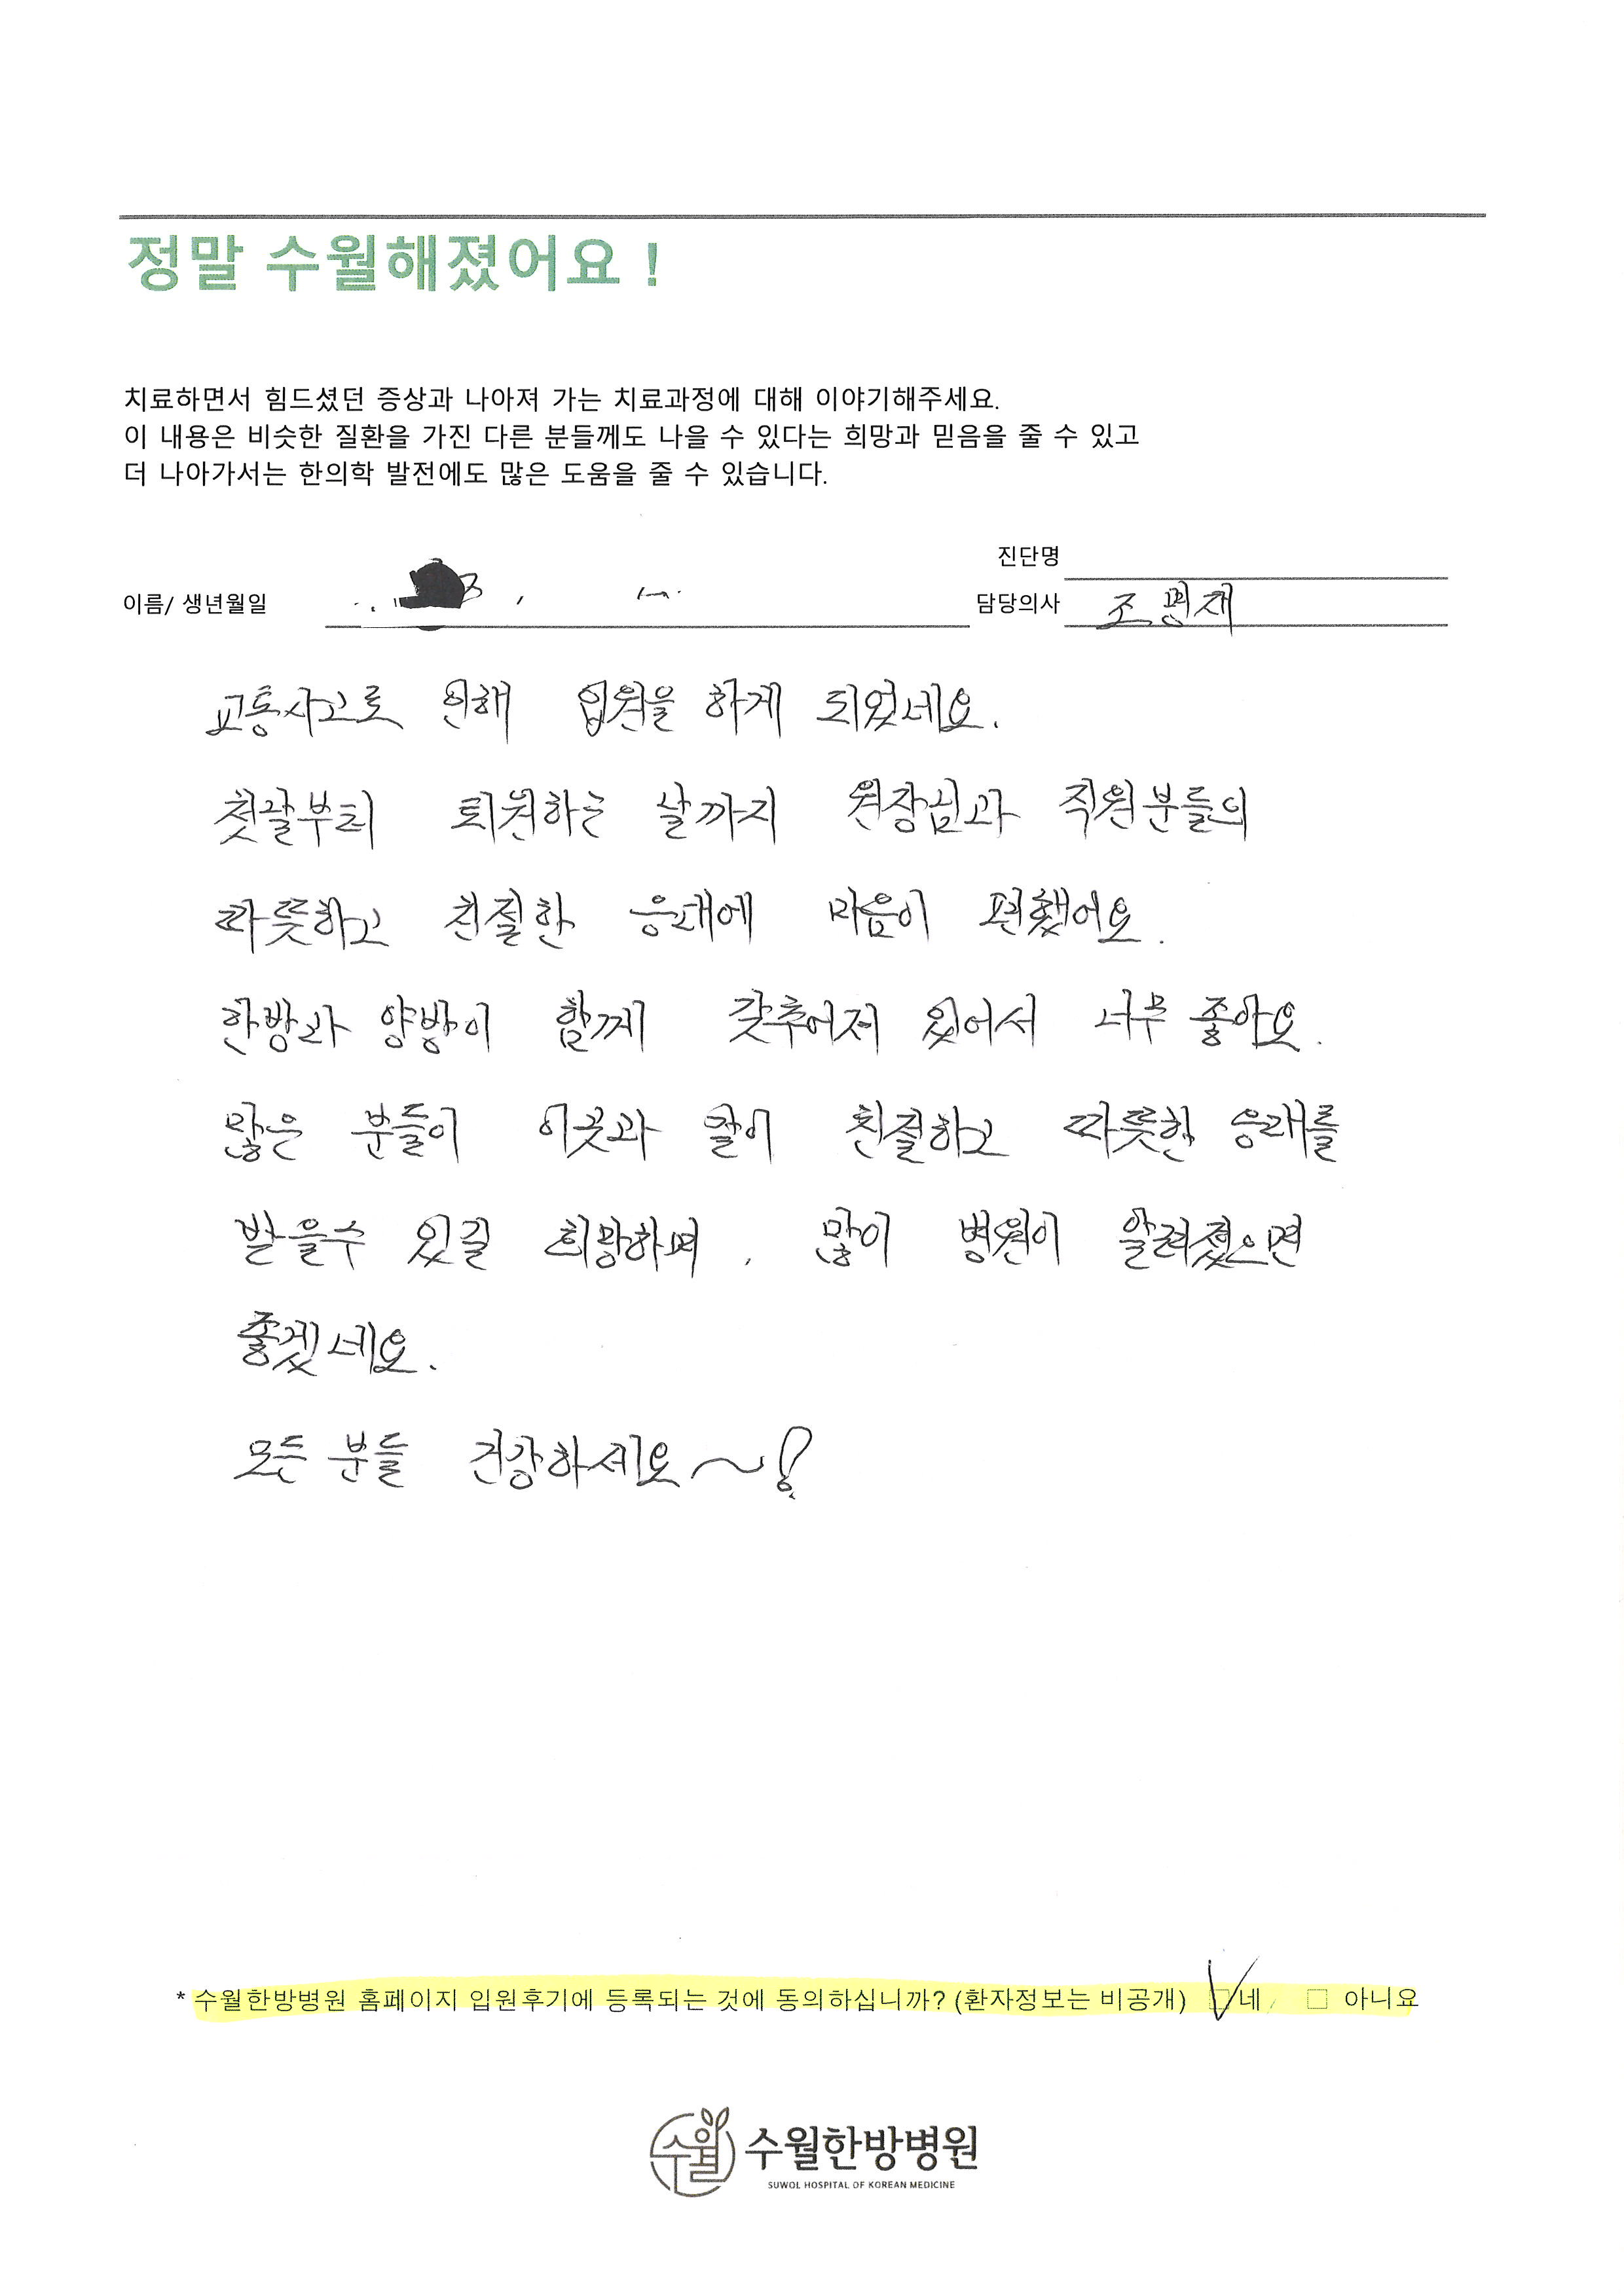 정말 수월해졌어요 !
치료하면서 힘드셨던 증상과 나아져 가는 치료과정에 대해 이야기해주세요.
이 내용은 비슷한 질환을 가진 다른 분들께도 나을 수 있다는 희망과 믿음을 줄 수 있고
더 나아가서는 한의학 발전에도 많은 도움을 줄 수 있습니다.
진단명
이름/ 생년월일
담당의사 조평재
교통사고로 인해 입원을 하게 되었네요.
첫날부터 퇴원하는 날까지 원장님과 직원분들의
따뜻하고 친절한 응대에 마음이 편했어요.
한방과 양방이 함께 갖추어져 있어서 너무 좋아요.
많은 분들이 이곳과 같이 친절하고 따뜻한 응대를
받을수 있길 희망하며, 많이 병원이 알려졌으면
좋겠네요.
모든 분들 건강하세요~!
* 수월한방병원 홈페이지 입원후기에 등록되는 것에 동의하십니까? (환자정보는 비공개) ☑ 네 / □ 아니요
수월 수월한방병원
SUWOL HOSPITAL OF KOREAN MEDICINE